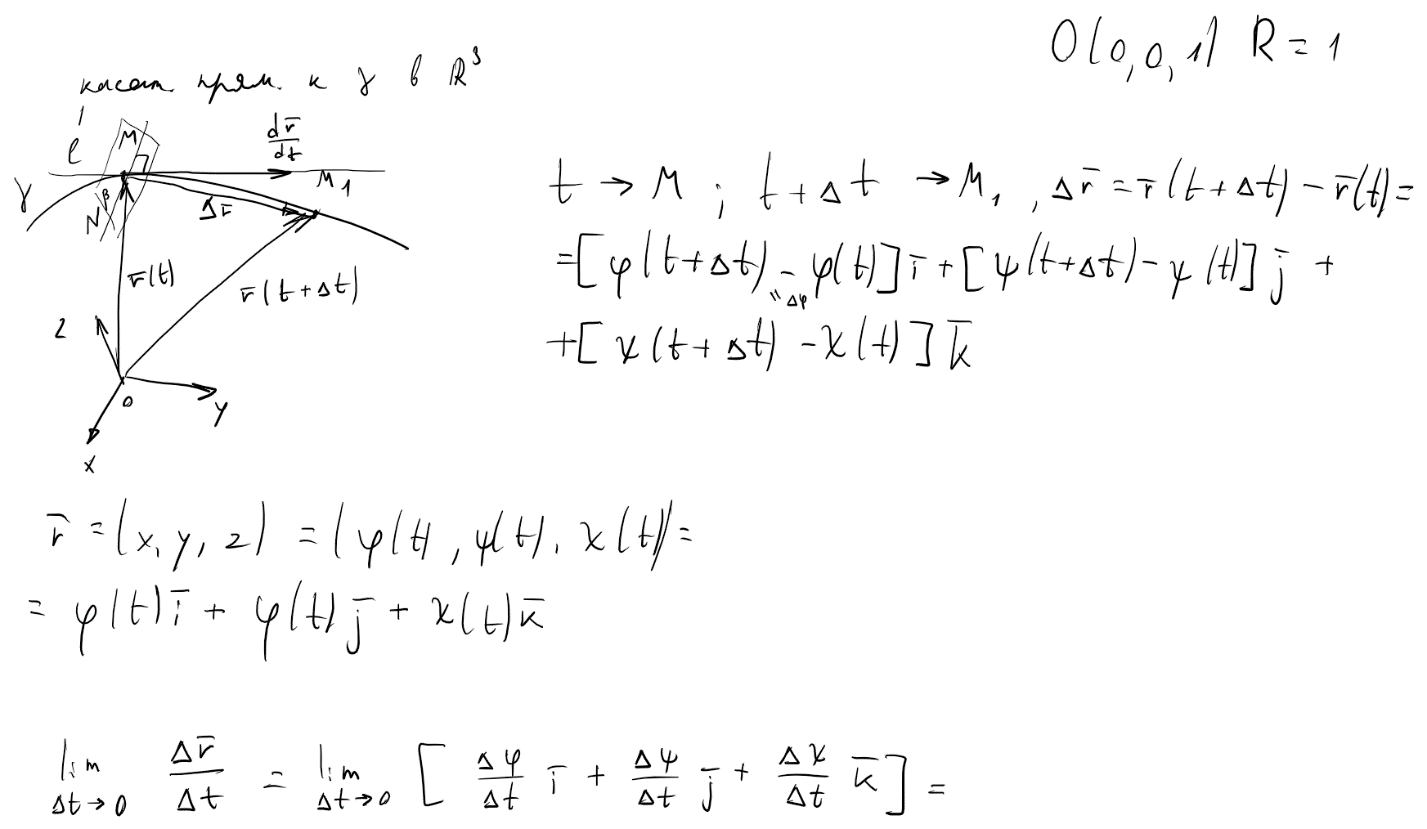 O(0,0,1) R=1
касат. прям. к γ в R³
l
M
dr̄/dt
M₁
γ
β
N
Δr̄
r̄(t)
r̄(t+Δt)
z
0
y
x
t → M ; t+Δt → M₁ , Δr̄ = r̄(t+Δt) - r̄(t) =
=[φ(t+Δt) - φ(t)] ī + [ψ(t+Δt) - ψ(t)] j̄ +
"Δφ
+[χ(t+Δt) - χ(t)] k̄
r̄ = (x, y, z) = (φ(t), ψ(t), χ(t)) =
= φ(t) ī + φ(t) j̄ + χ(t) k̄
lim Δt→0 Δr̄/Δt = lim Δt→0 [ Δφ/Δt ī + Δψ/Δt j̄ + Δχ/Δt k̄ ] =